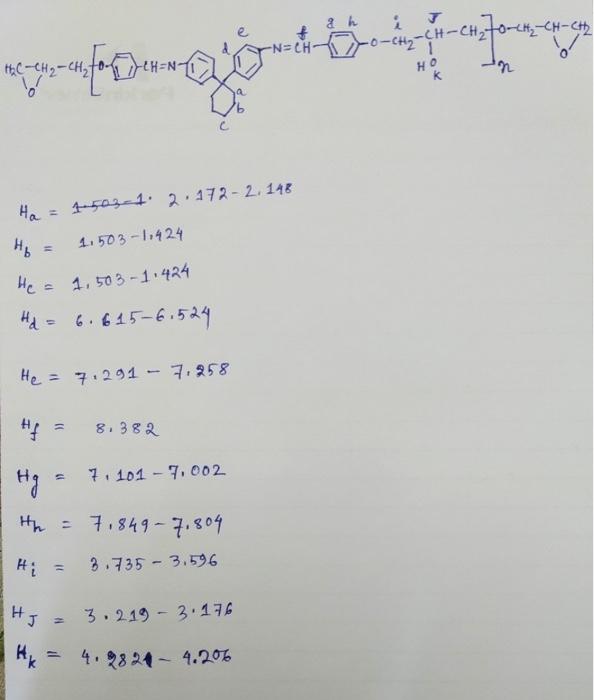 H₂C-CH₂-CH₂[O-CH=N-N=CH-O-CH₂-CH-CH₂]ₙO-CH₂-CH-CH₂
O
HO
O
a
b
c
d
e
f
g
h
i
J
k
Ha = 1.503-1. 2.172-2.148
Hb = 1.503-1.424
Hc = 1.503-1.424
Hd = 6.615-6.524
He = 7.291 - 7.258
Hf = 8.382
Hg = 7.101-7.002
Hh = 7.849-7.804
Hi = 3.735-3.596
HJ = 3.219-3.176
Hk = 4.2821-4.206